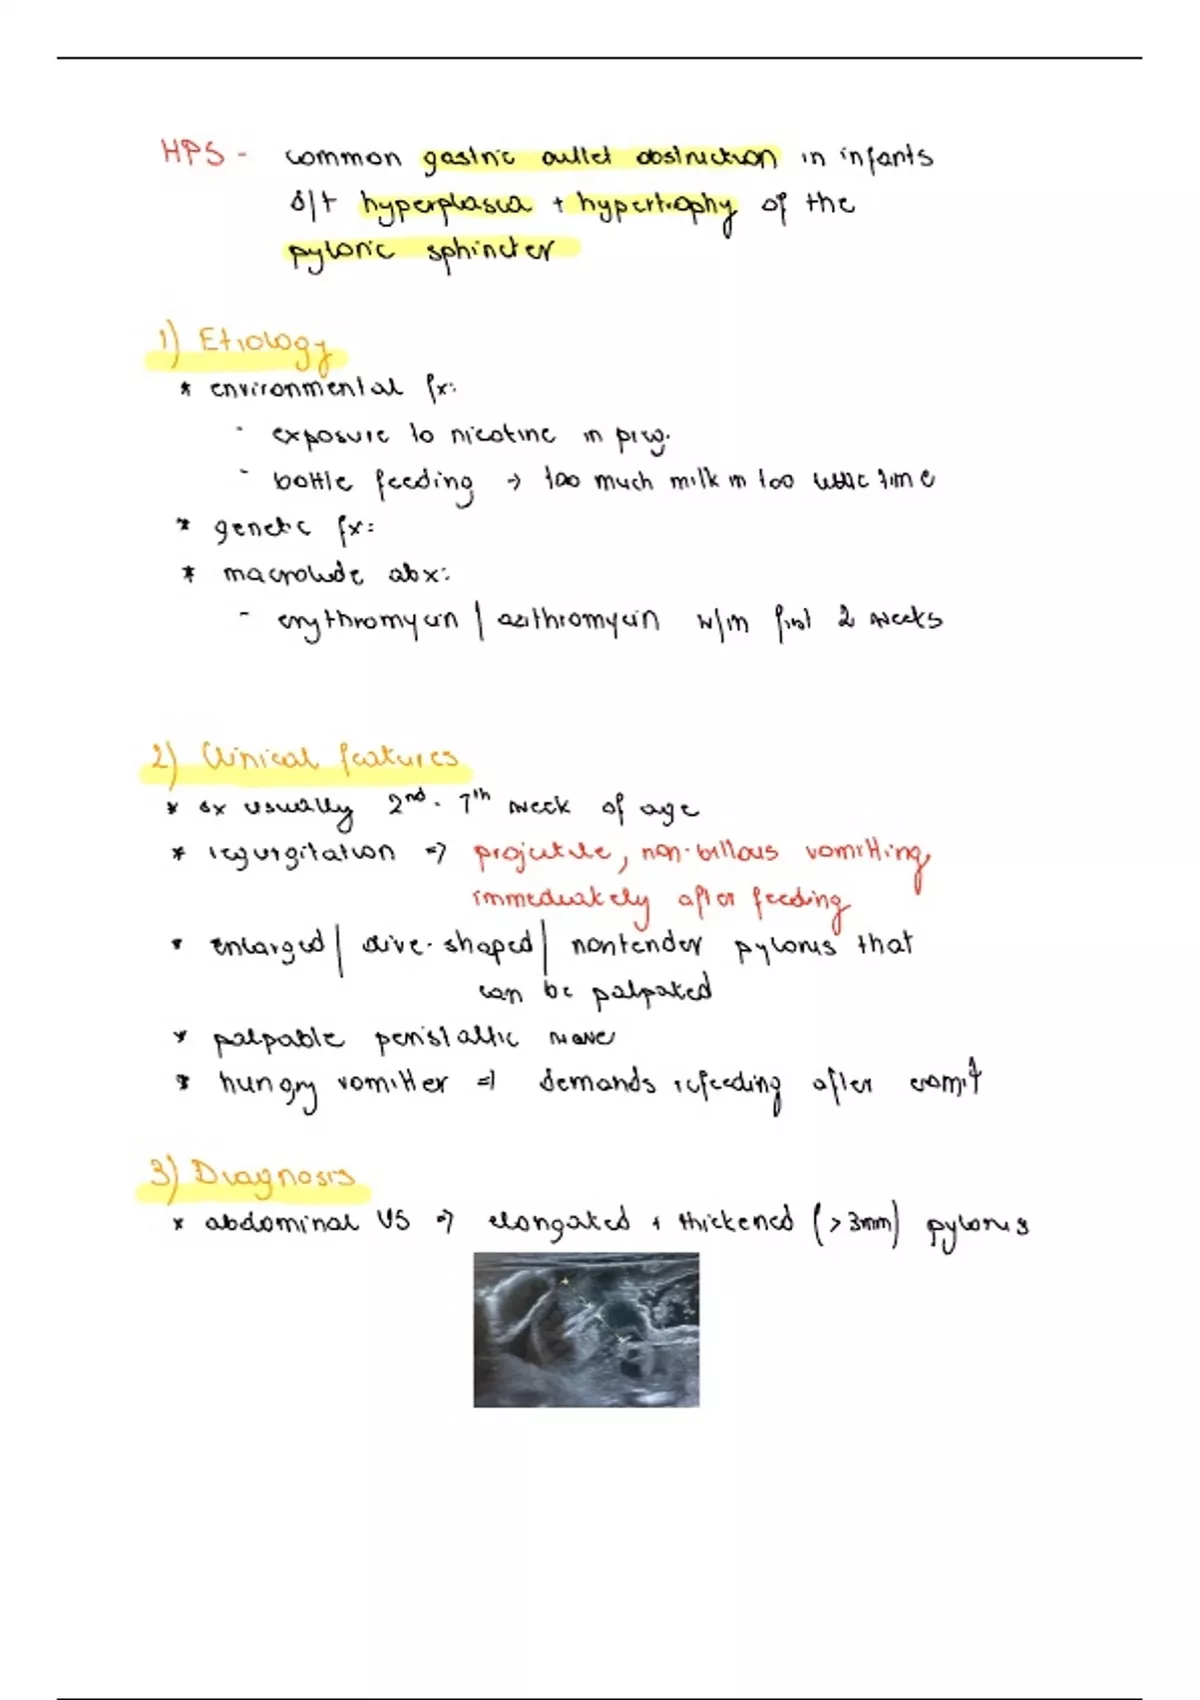 HPS - common gastric outlet obstruction in infants
d/t hyperplasia + hypertrophy of the
pyloric sphincter
1) Etiology
* environmental fx:
- exposure to nicotine in preg.
- bottle feeding → too much milk in too little time
* genetic fx:
* macrolide abx:
- erythromycin / azithromycin w/in first 2 weeks
2) Clinical features
* sx usually 2nd - 7th week of age
* regurgitation => projectile, non-bilious vomitting
immediately after feeding
* enlarged / olive-shaped / nontender pylorus that
can be palpated
* palpable peristaltic wave
* hungry vomitter => demands refeeding after vomit
3) Diagnosis
* abdominal US => elongated + thickened (>3mm) pylorus